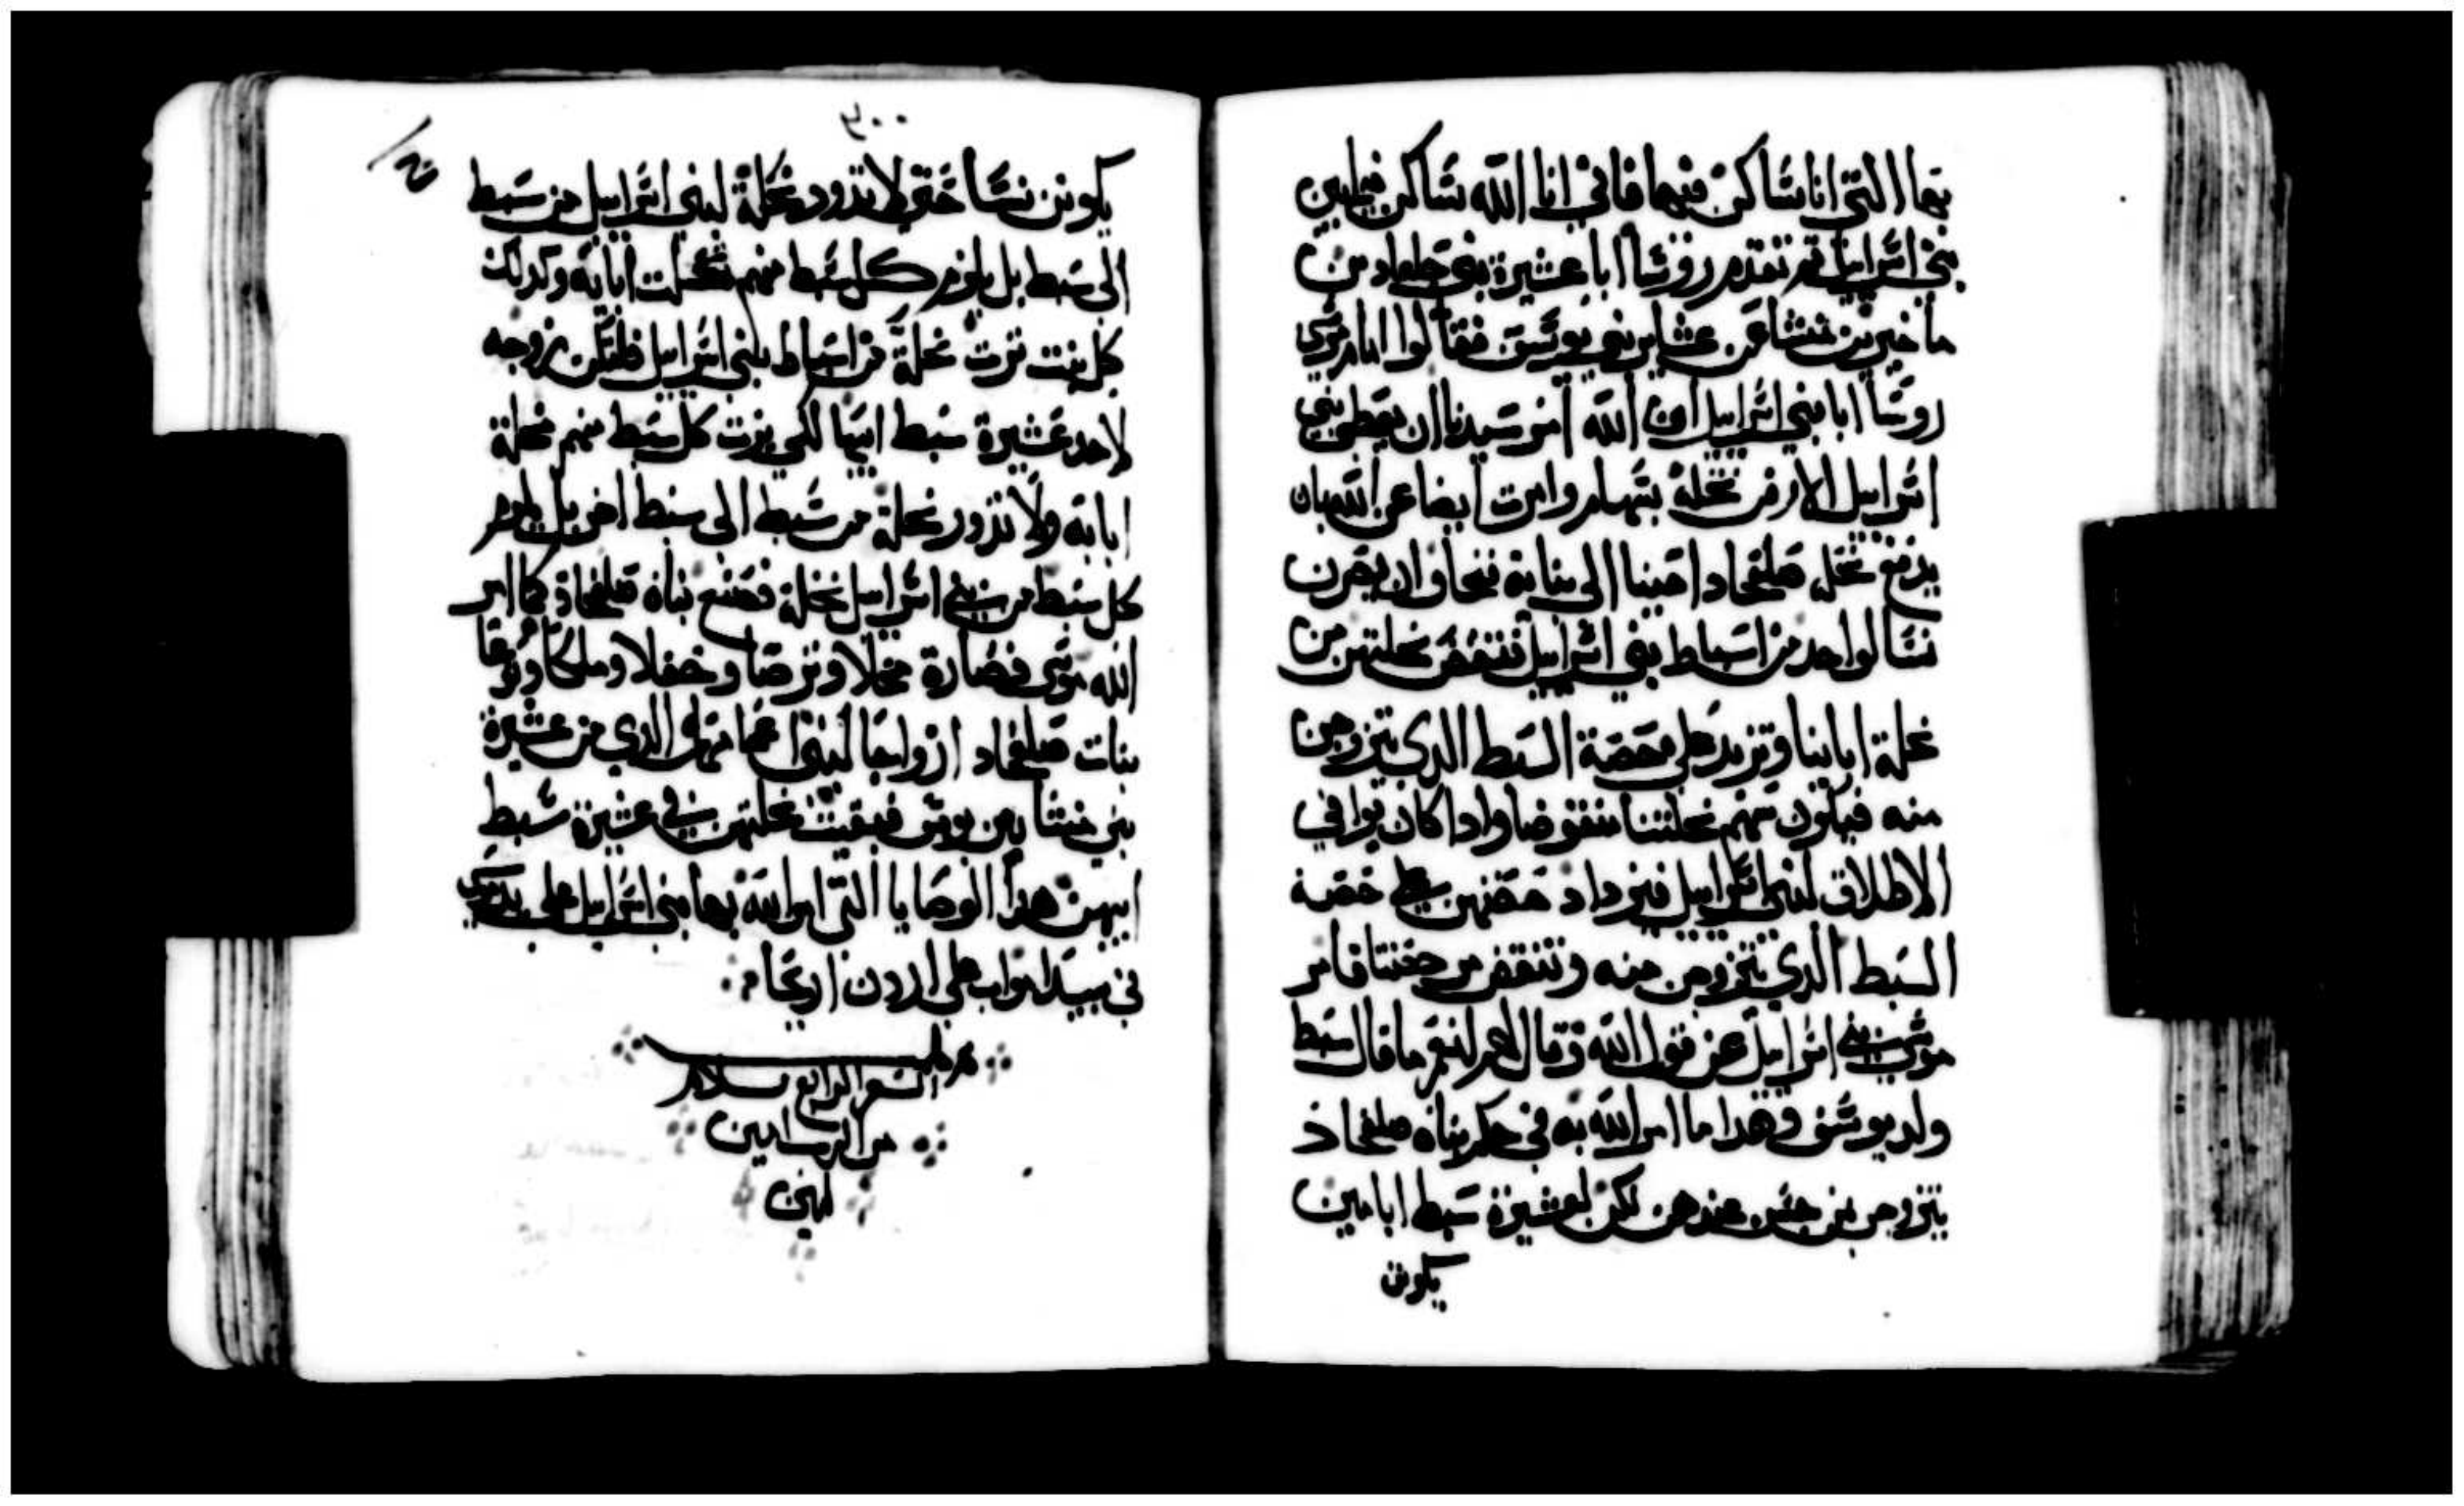 بها التي انا ساكن فيها فاني انا الله ساكن فيمابين
بني اسراييل ثم تقدم روسا ابا عشيرة بني جلعاد بن
ماخير بن منشا من عشاير بني يوسف فقالوا امام موسى
روسا ابا بني اسراييل ان الله امر سيدنا ان يعطي بني
اسراييل الارض نحلة بسهام وامرت ايضا عن الله بان
يدفع نحلة صلفحاد اخينا الى بناته فنخاف ان يصرن
نسا لواحد من اسباط بني اسراييل فتنقص نحلتهن من
نحلة اباينا وتزيد على حصة السبط الدي يتزوجن
منه فيكون سهم نحلتنا منقوضا وادا كان توافي
الاطلاق لبني اسراييل فيزداد حصتهن على حصة
السبط الدي يتزوجن منه وتنقص من حصتنا فامر
موسى بني اسراييل عن قول الله وقال لهم لنعم ما قال سبط
ولد يوسف وهدا ما امر الله به في حكم بناة صلفحاد
يتزوجن بمن حسن عندهن لكن لعشيرة سبط اباهين
يكونن
٣٠٠
يكونن نسا حتى لا تدور نحلة لبني اسراييل من سبط
الى سبط بل يلزم كل سبط منهم نحلت ابايه وكدلك
كل بنت ترت نحلة من اسباط بني اسراييل فلتكن زوجه
لاحد عشيرة سبط ابيها لكي يرت كل سبط منهم نحلة
ابايه ولا تدور نحلة من سبط الى سبط اخر بل يلزم
كل سبط من بني اسراييل نحلة فصنع بناة صلفحاد كما امر
الله موسى فصارة محلا وترصا وحفلا وملكا ونوعا
بنات صلفحاد ازواجا لبني اعمامهن الدي من عشيرة
بني منشا بن يوسف فبقيت نحلتهن في عشيرة سبط
ابيهن هدا الوصايا التي امر الله بها بني اسراييل على يد موسى
في بيدا مواب على اردن اريحا
كمل
السفر الرابع بسلام
من الرب امين
امين